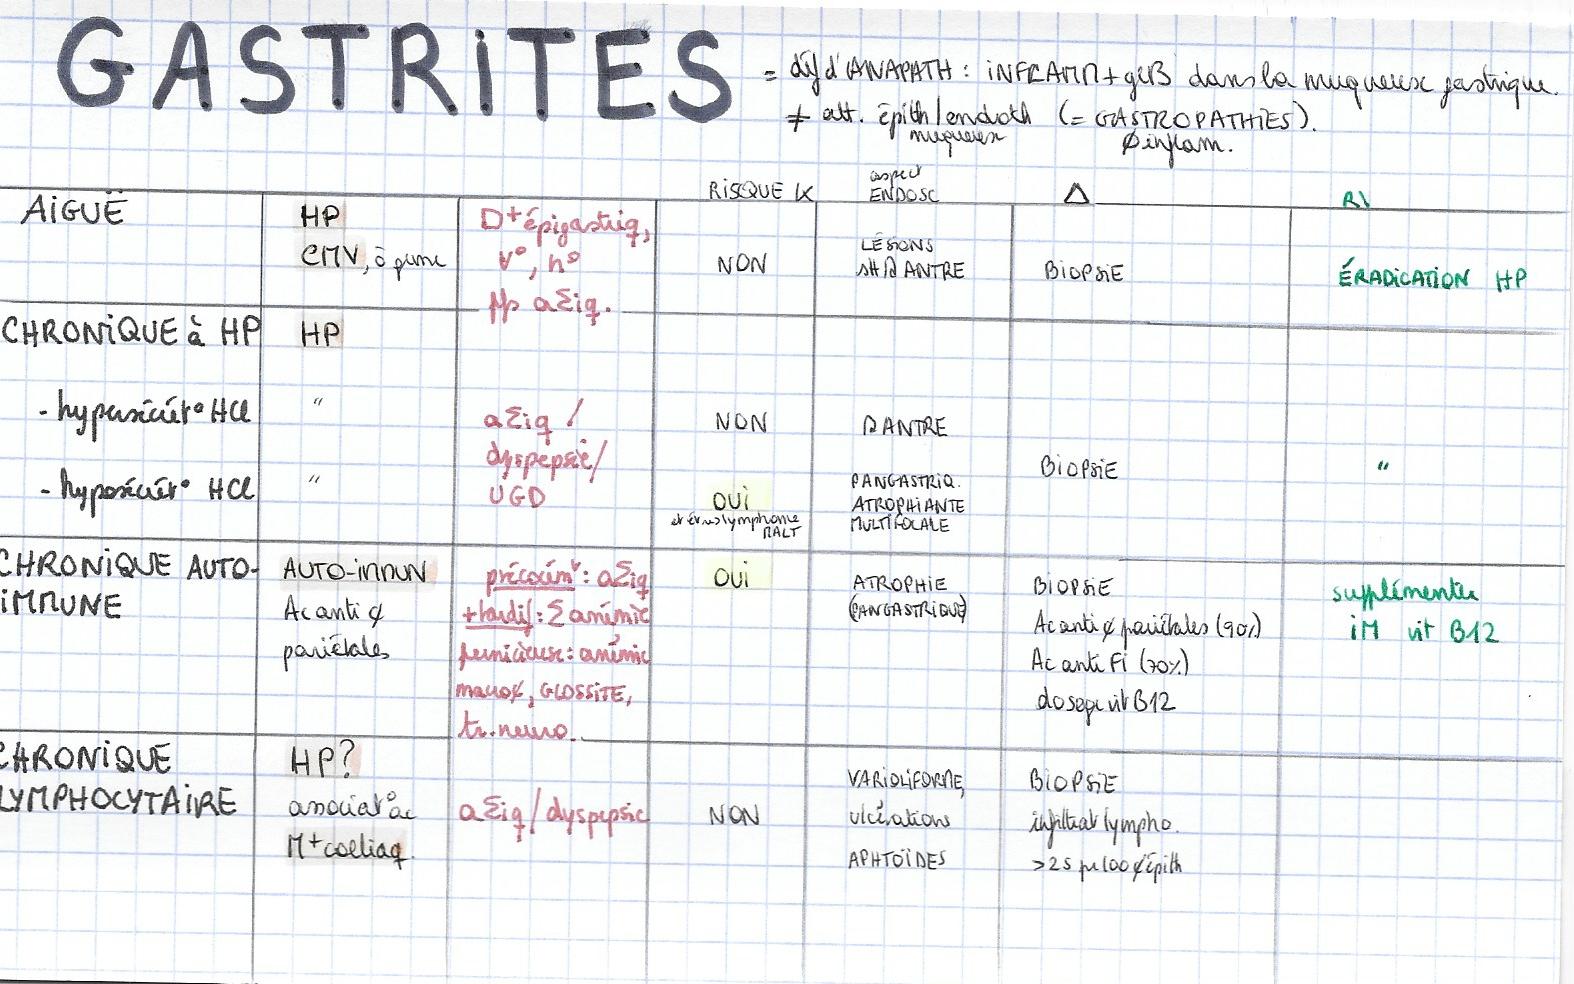 GASTRITES
= déf d'ANAPATH : INFLAMM + glB dans la muqueuse gastrique.
≠ att. épith/endoth (= GASTROPATHIES).
muqueuse ∅ inflam.
RISQUE K
aspect
ENDOSC
△
R\
AIGUË
HP
CMV, à pyrne
D+ épigastriq,
V°, n°
pfs aΣiq.
NON
LÉSIONS
ANTRE
BIOPSIE
ÉRADICATION HP
CHRONIQUE à HP
HP
- hypersécrét° HCl
"
aΣiq /
dyspepsie/
UGD
NON
ANTRE
BIOPSIE
"
- hyposécrét° HCl
"
OUI
lymphome
MALT
PANGASTRIQ.
ATROPHIANTE
MULTIFOCALE
CHRONIQUE AUTO-
IMMUNE
AUTO-IMMUN
Ac anti ¢
pariétales
précocemt : aΣiq
+ tardif : Σ anémie
pernicieuse : anémie
macro¢, GLOSSITE,
tr. neuro.
OUI
ATROPHIE
(PANGASTRIQUE)
BIOPSIE
Ac anti ¢ pariétales (90%)
Ac anti Fi (70%)
dosage vit B12
supplémenter
iM vit B12
CHRONIQUE
LYMPHOCYTAIRE
HP?
associat° ac
M+ coeliaq.
aΣiq / dyspepsie
NON
VARIOLIFORME,
ulcérations
APHTOÏDES
BIOPSIE
infiltrat lympho.
>25 pr 100 ¢ épith